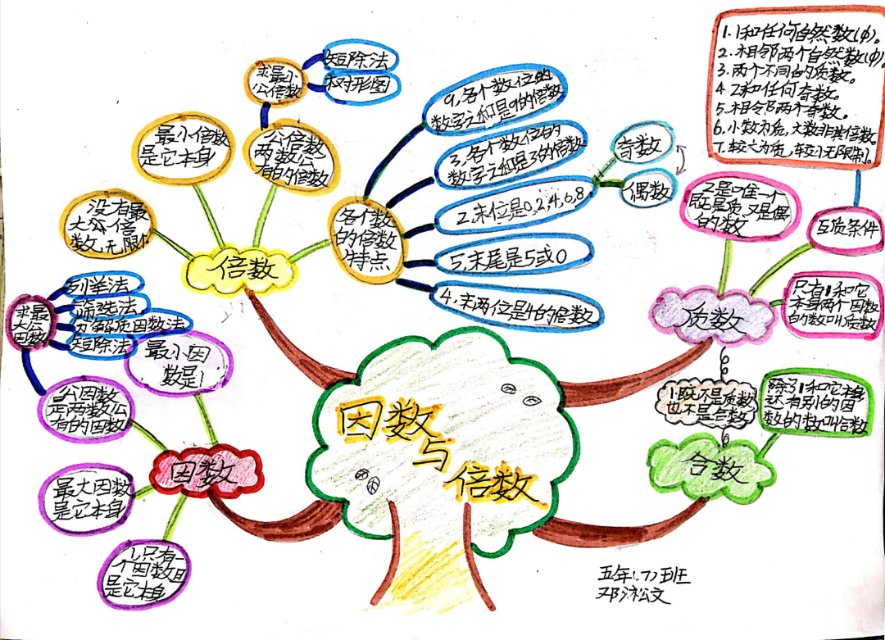 因数
与
倍数
倍数
没有最
大公倍
数,无限个
最小倍数
是它本身
公倍数
两数公
有的倍数
求最小
公倍数
短除法
树形图
各个数
的倍数
特点
9,各个数位的
数字之和是9的倍数
3,各个数位的
数字之和是3的倍数
2,末位是0,2,4,6,8
奇数
偶数
5,末尾是5或0
4,末两位是4的倍数
质数
2是唯一个
既是质又是偶
的数
互质条件
1.1和任何自然数(φ)。
2.相邻两个自然数(φ)。
3.两个不同的质数。
4.2和任何奇数。
5.相邻两个奇数。
6.小数为质,大数非其倍数。
7.较大为质,较小无限制。
只有1和它
本身两个因数
的数叫质数
1既不是质数
也不是合数
合数
除了1和它本身
还有别的因
数的数叫合数
因数
最小因
数是1
公因数
是两数公
有的因数
求最
大公
因数
列举法
筛选法
分解质因数法
短除法
最大因数
是它本身
1只有一
个因数且
是它本身
五年(7)班